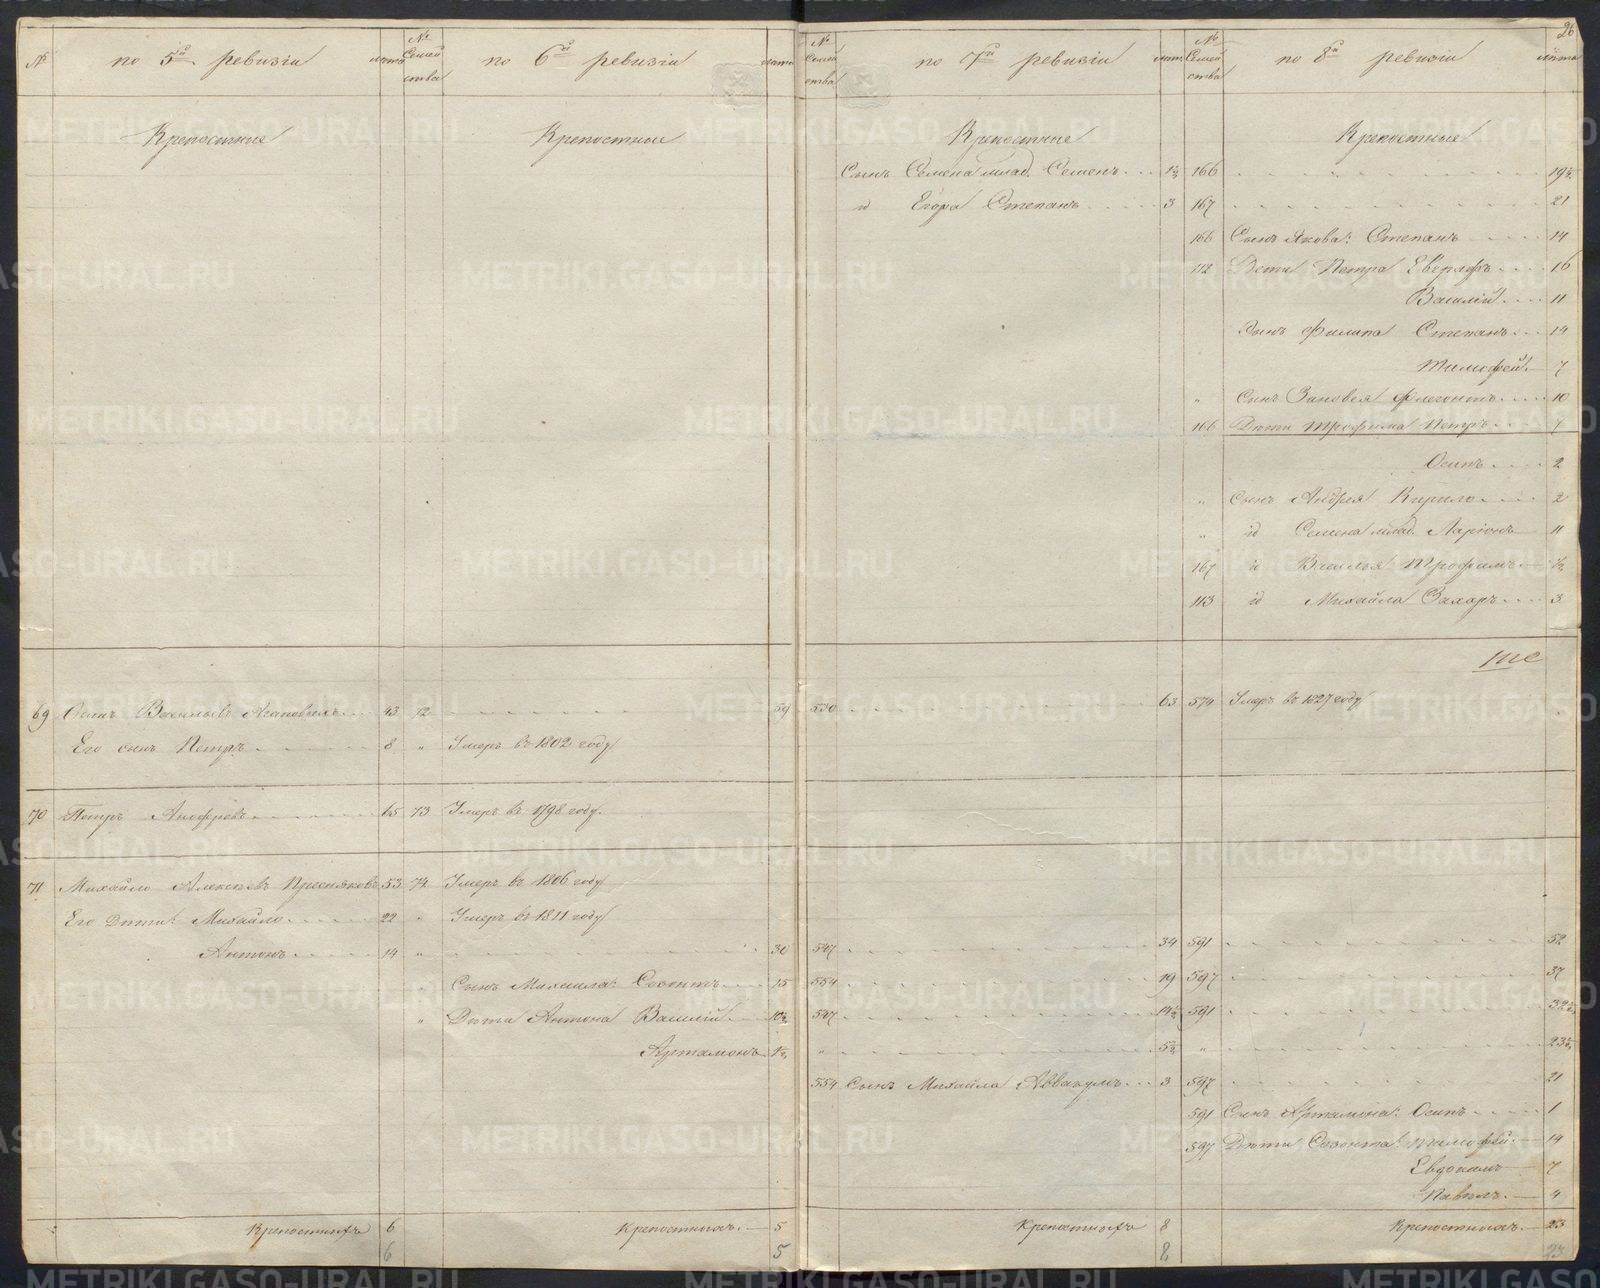 26
№ по 5й ревизіи лѣта № Семейства по 6й ревизіи лѣта № Семейства по 7й ревизіи лѣта № Семейства по 8й ревизіи лѣта
Крепостные Крепостные Крепостные Крепостные
Сынъ Семена млад. Семенъ 1½ 166 19½
id Егора Степанъ 3 167 21
166 Сынъ Якова: Степанъ 14
112 Дети Петра Евграфъ 16
Василій 11
Сынъ Филипа Степанъ 14
Тимофей 7
" Сынъ Зиновея Флегонтъ 10
166 Дѣти Трофима Петръ 7
Осипъ 2
" Сынъ Андрея Кирило 2
" id Семена млад. Ларіонъ 11
167 id Василья Трофимъ ½
113 id Михайла Захаръ 3
69 Осипъ Васильевъ 43 72 59 550 63 574 Умеръ въ 1827 году
Его сынъ Петръ 8 " Умеръ въ 1802 году
70 Петръ 65 73 Умеръ въ 1798 году.
71 Михайло Алексѣевъ Пресняковъ 53 74 Умеръ въ 1806 году
Его Дѣти: Михайло 22 " Умеръ въ 1811 году
Антонъ 14 " 30 547 34 591 52
Сынъ Михаила: Созонтъ 15 554 19 597 37
" Дѣти Антона Василій 10½ 547 14½ 591 32½
Артамонъ 1½ " 5½ " 23½
554 Сынъ Михайла Аввакумъ 3 597 21
591 Сынъ Артамона: Осипъ 1
597 Дѣти Созонта: Тимофей 14
Евдокимъ 7
Павелъ 4
Крепостныхъ 6 Крепостныхъ 5 Крепостныхъ 8 Крепостныхъ 23
6 5 8 23
METRIKI.GASO-URAL.RU